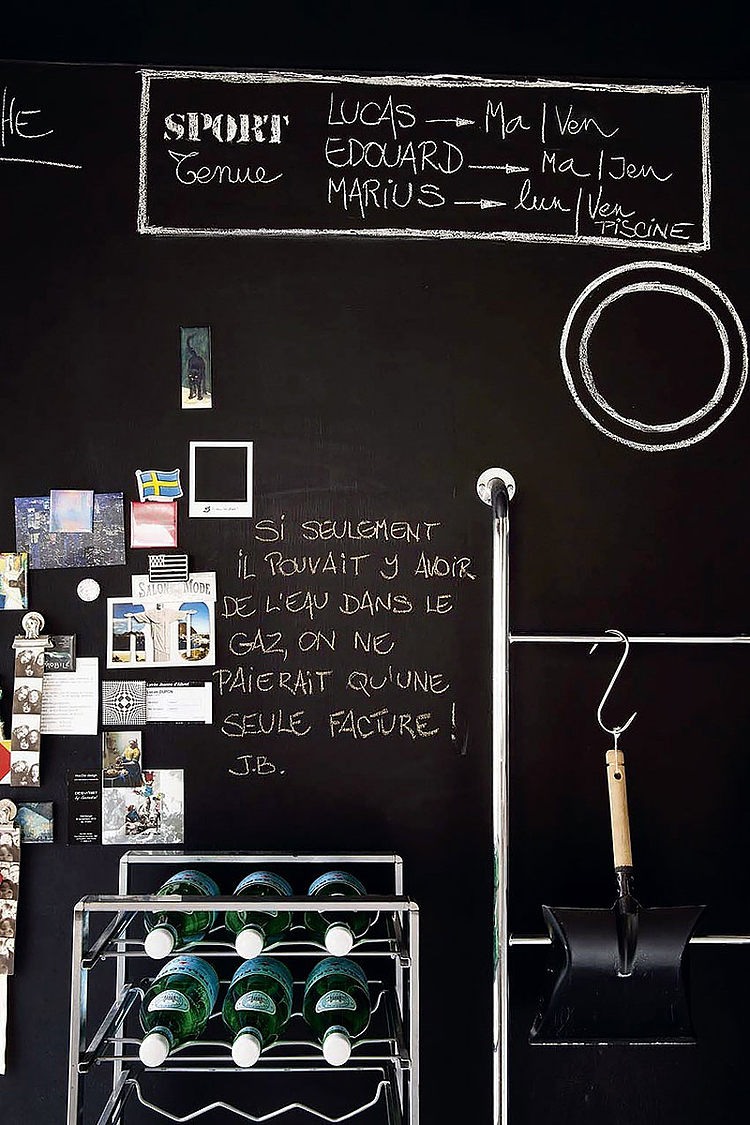 HE
SPORT
Tenue
LUCAS → Ma | Ven
EDOUARD → Ma | Jeu
MARIUS → lun | Ven
PISCINE
SI SEULEMENT
IL POUVAIT Y AVOIR
DE L'EAU DANS LE
GAZ, ON NE
PAIERAIT QU'UNE
SEULE FACTURE !
J.B.
SALON MODE
MOBILE